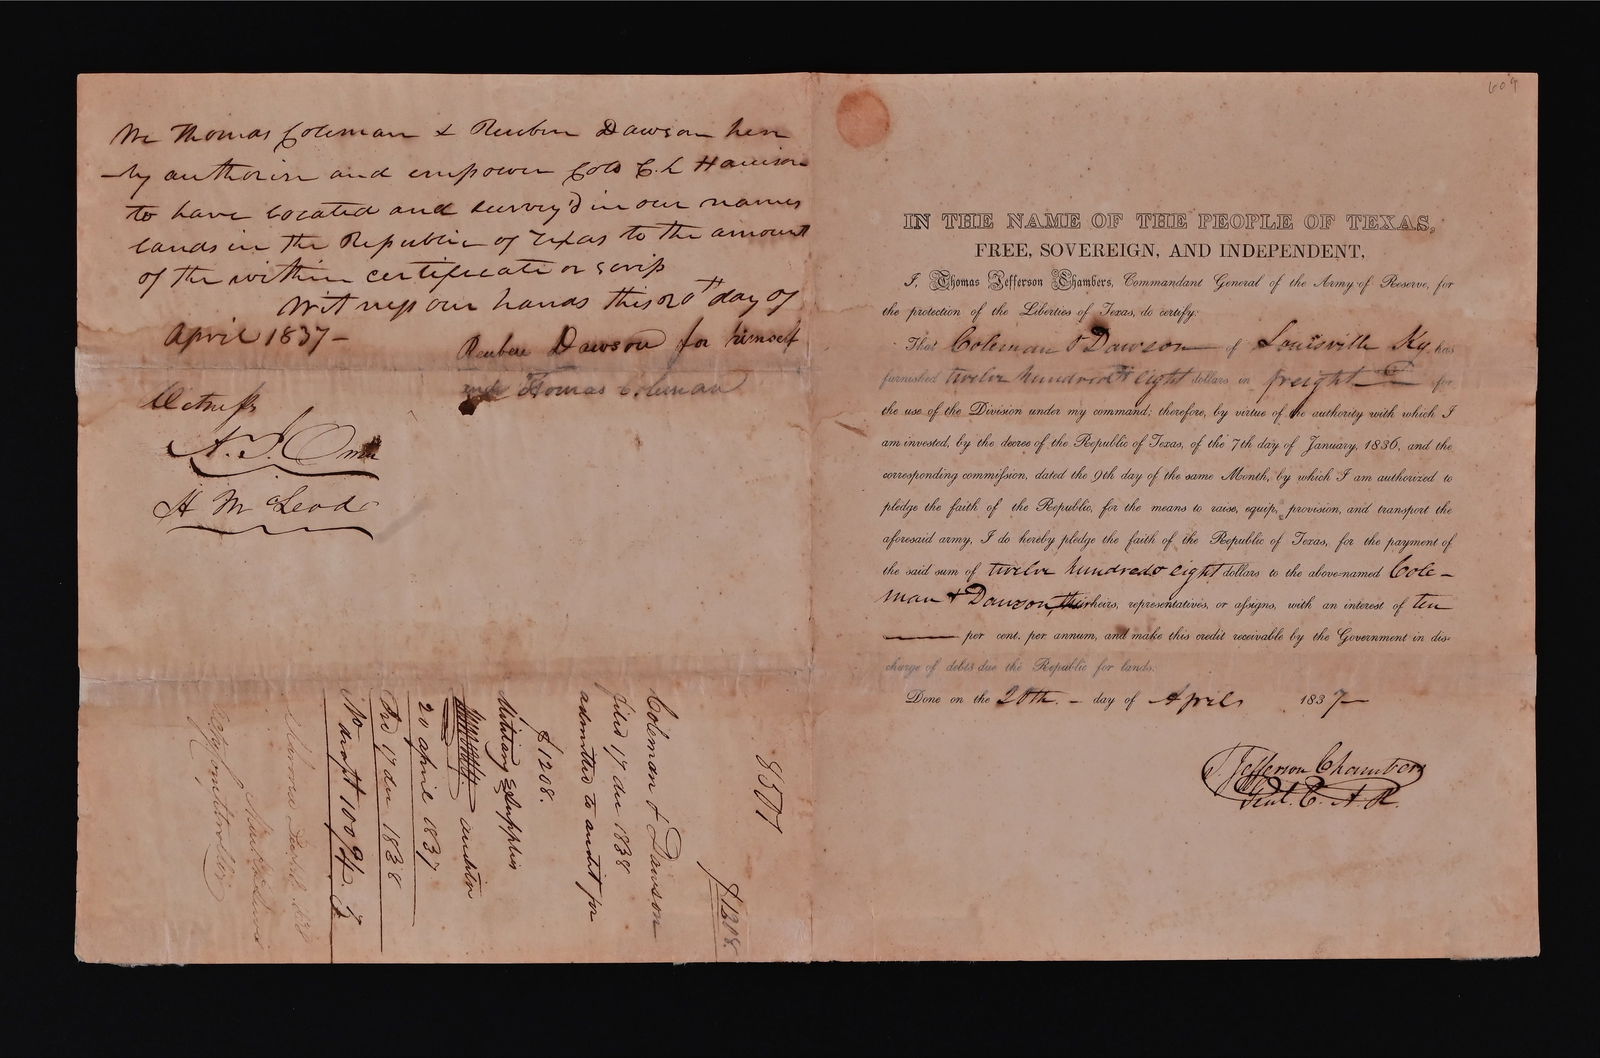 We Thomas Coleman & Reuben Dawson here
-by authorise and empower Colo C. L Harrison
to have located and survey'd in our names
lands in the Republic of Texas to the amount
of the within certificate or scrip
Witness our hands this 20th day of
April 1837-
Reuben Dawson for himself
and Thomas Coleman
Witness
H McLeod
8577
$1208.
Coleman & Dawson
filed 17 dec 1838
admitted to audit for
$1208.
Military Supplies
auditor
20 april 1837
17 dec 1838
No draft 10094
609
IN THE NAME OF THE PEOPLE OF TEXAS,
FREE, SOVEREIGN, AND INDEPENDENT,
I, Thomas Jefferson Chambers, Commandant General of the Army of Reserve, for
the protection of the Liberties of Texas, do certify:
That Coleman & Dawson of Louisville Ky. has
furnished twelve hundred & eight dollars in freight &c for
the use of the Division under my command; therefore, by virtue of the authority with which I
am invested, by the decree of the Republic of Texas, of the 7th day of January, 1836, and the
corresponding commission, dated the 9th day of the same Month, by which I am authorized to
pledge the faith of the Republic, for the means to raise, equip, provision, and transport the
aforesaid army, I do hereby pledge the faith of the Republic of Texas, for the payment of
the said sum of twelve hundred & eight dollars to the above-named Cole-
man & Dawson, their heirs, representatives, or assigns, with an interest of ten
per cent. per annum, and make this credit receivable by the Government in dis-
charge of debts due the Republic for lands.
Done on the 20th. - day of April 1837-
T. Jefferson Chambers
Genl. C. A. R.